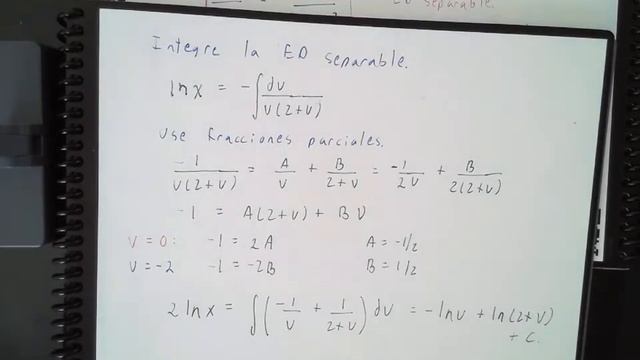 ED separable.
Integre la ED separable.
ln x = -∫ dv / v(2+v)
Use fracciones parciales.
-1 / v(2+v) = A/v + B/(2+v) = -1/2v + B/2(2+v)
-1 = A(2+v) + Bv
v=0: -1 = 2A A = -1/2
v=-2 -1 = -2B B = 1/2
2 ln x = ∫(-1/v + 1/(2+v)) dv = -ln v + ln(2+v)
+ C.